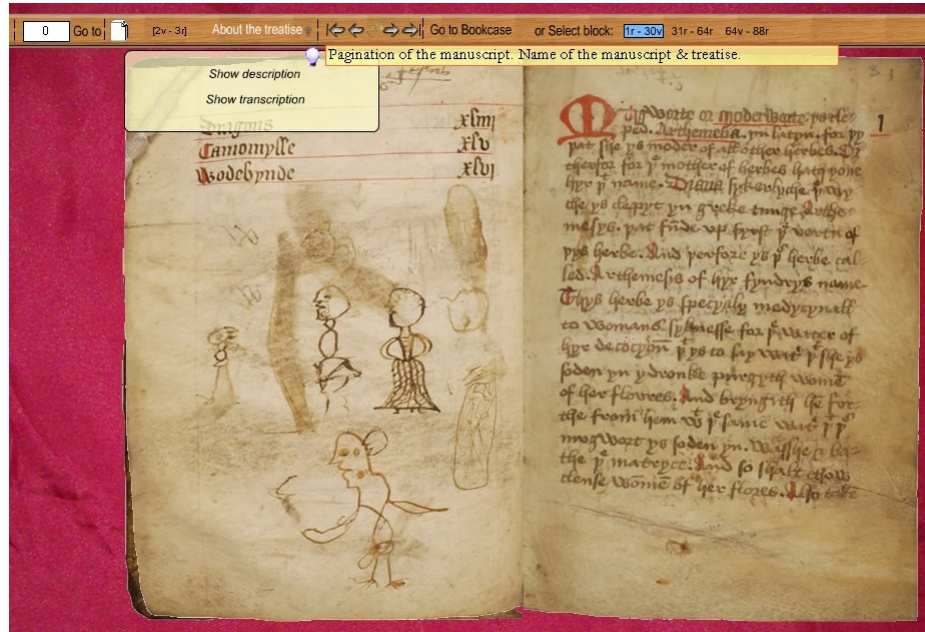 0 Go to [2v - 3r] About the treatise Go to Bookcase or Select block: 1r - 30v 31r - 64r 64v - 88r
Pagination of the manuscript. Name of the manuscript & treatise.
Show description
Show transcription
Dragons xliiij
Camomylle xlv
Wodebynde xlvj
1
Mugworte or moderworte ys cle-
ped. Arthemesia. yn latyn. for yy
yat she ys moder of all other herbes.
therfor for yͤ mother of herbes hath yone
hyr yͤ name. sykerlyche
the ys clepyt yn greke tunge Arthe-
mesys. yat fūde vp fyrst yͤ vertu of
yys herbe. And yerfore ys yͤ herbe cal-
led. Arthemesis of hyr fyndrys name
Thys herbe ys specyaly medycynall
to womans syknesse for yͤ water of
hyr decoctyon ys to say she ys
soden yn y dronke purgyth womē
of her floures. And bryngith he for-
the from hem yͤ same
mogwort ys soden yn. Wasshe ba-
the yͤ matryce. And so shalt thow
clense womē of her flores. Also take